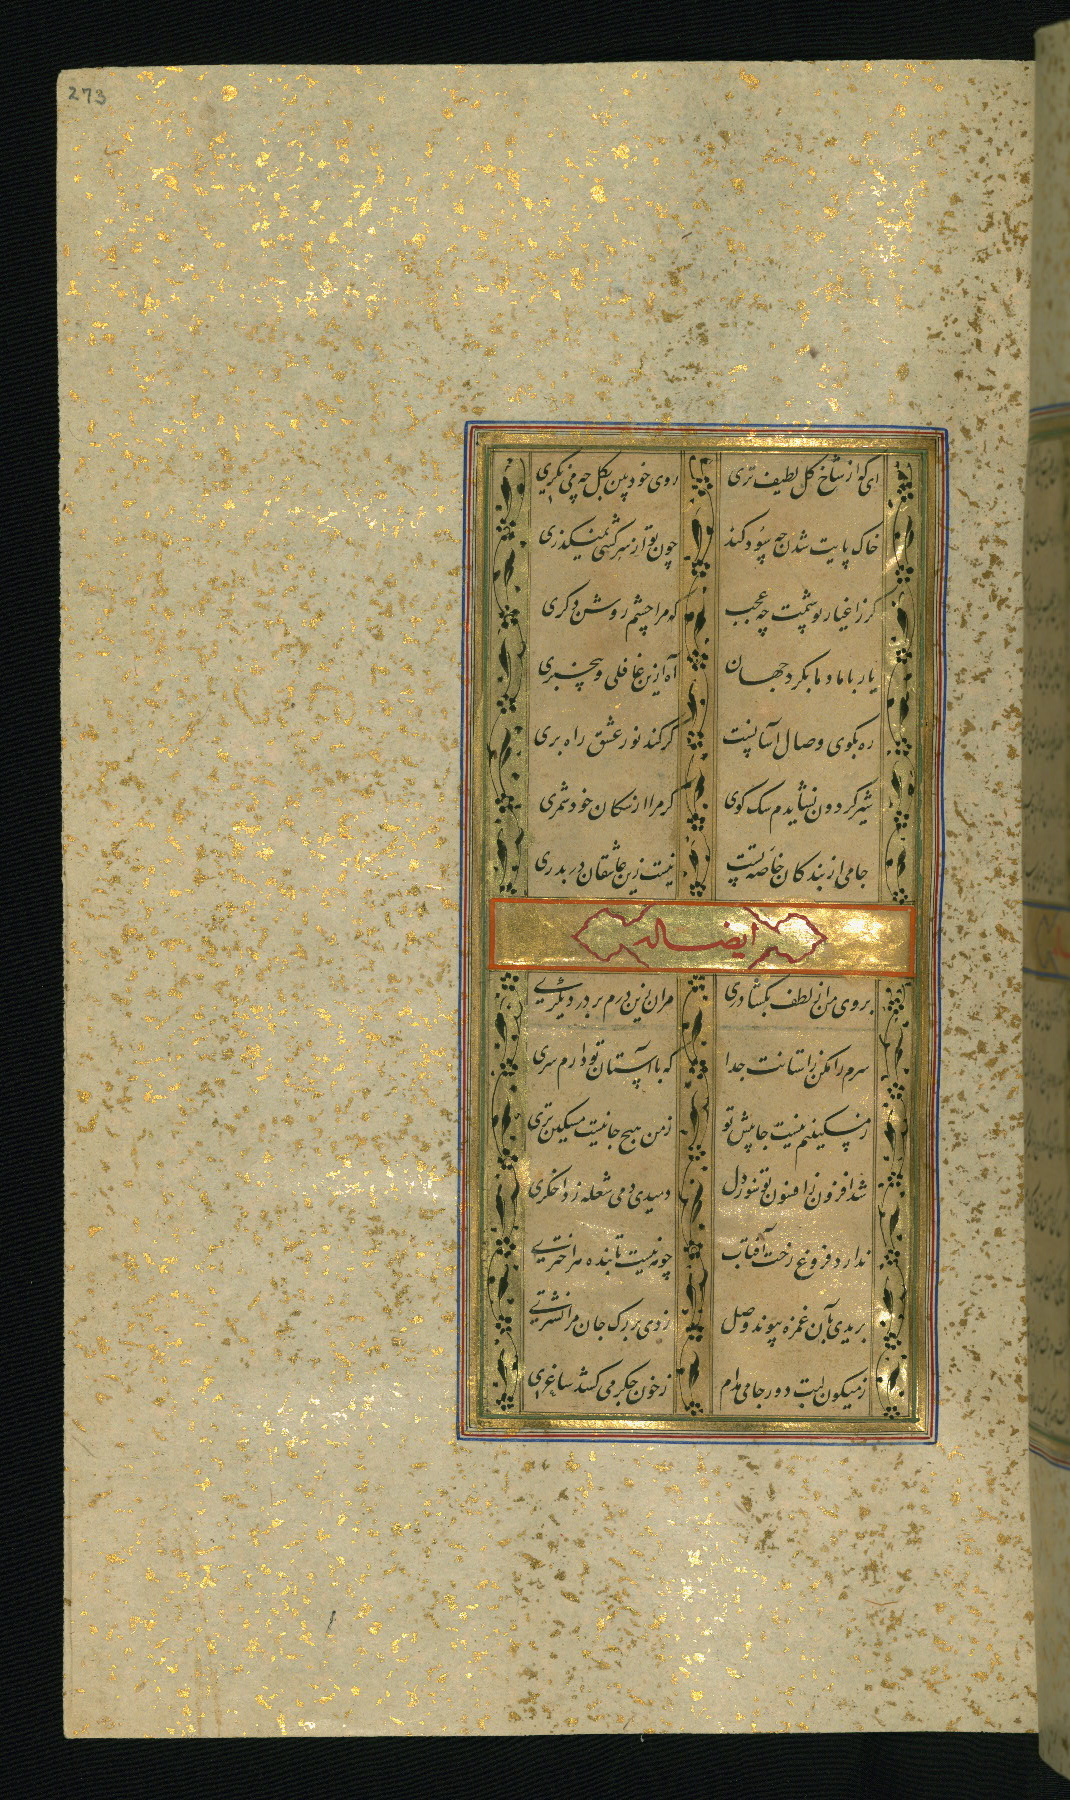 273
ای که از شاخ گل لطیف تری روی خود بین بگل چه می نگری
خاک پایت شدن چه سود کند چون تو از سرکشی نمیگذری
گرز اغیار پوشمت چه عجب که مرا چشم روشن دگری
یار با ما و ما بگرد جهان آه ازین غافلی و بیخبری
ره بکوی وصال آسانست گر کند نور عشق راه بری
شیر گردون نشایدم سک کوی گر مرا از سکان خود شمری
جامی از بندگان خاصه تست نیست زین عاشقان دربدری
ایضا له
بروی من از لطف بگشا دری مران زین درم بر در دیگری
سرم را مکن ز استانت جدا که با آستان تو دارم سری
ز مسکینیم نیست جا پیش تو ز من هیچ جا نیست مسکین تری
شد افزون ز افسون تو سوز دل دمیدی دمی شعله زد اخگری
ندارد فروغ رخت آفتاب چو مه نیست تابنده هر اختری
بریدی بآن غمزه پیوند وصل زدی بر رک جان مرا نشتری
ز میگون لبت دور جامی مدام ز خون جگر می کشد ساغری